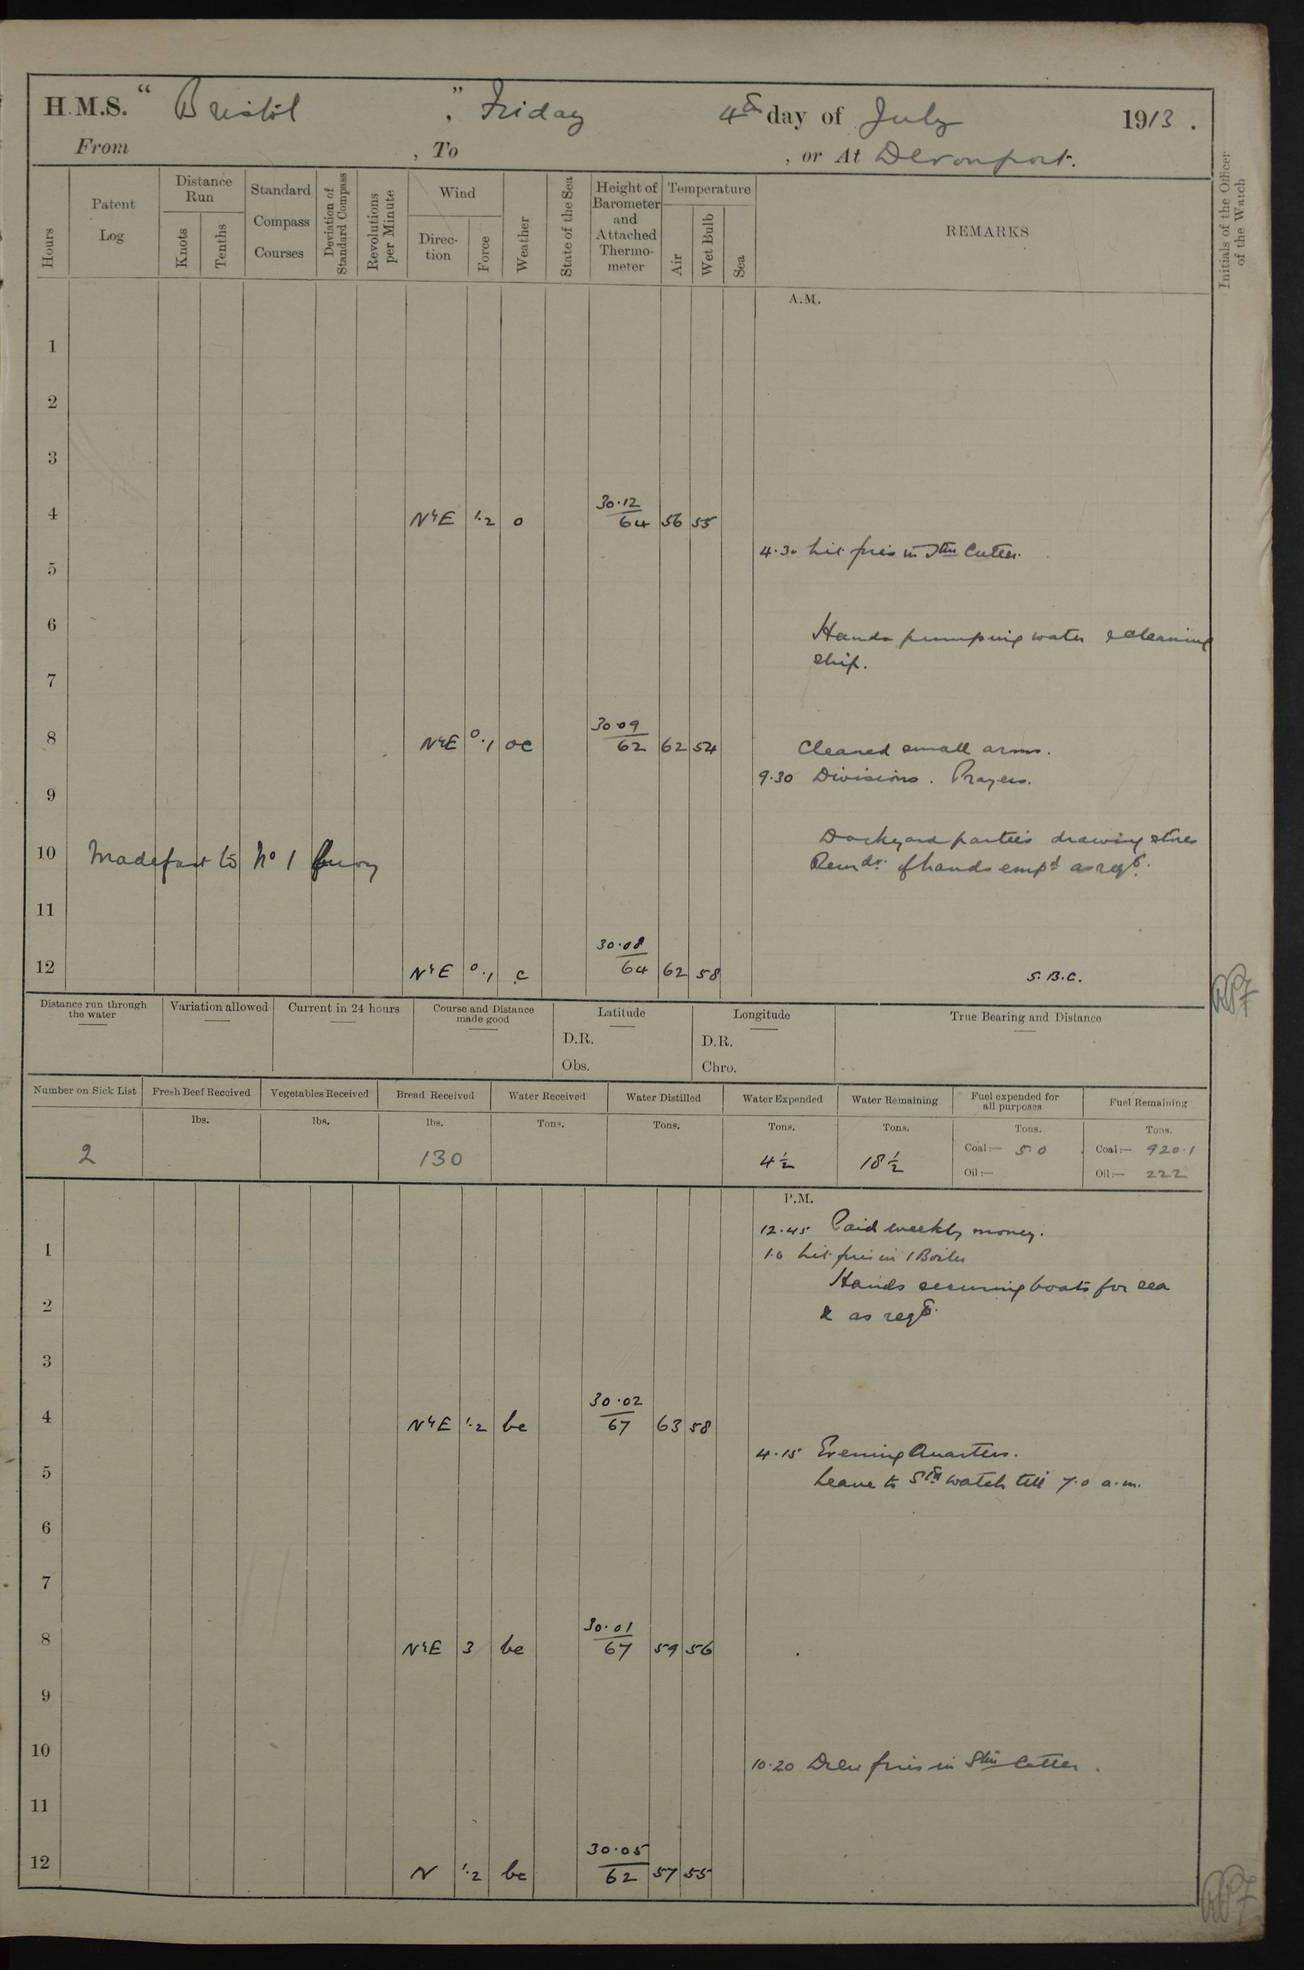 H.M.S. " Bristol ", Friday 4th day of July 1913.
From , To , or At Devonport.
Hours
Patent Log
Distance Run
Knots
Tenths
Standard Compass Courses
Deviation of Standard Compass
Revolutions per Minute
Wind
Direction
Force
Weather
State of the Sea
Height of Barometer and Attached Thermometer
Temperature
Air
Wet Bulb
Sea
REMARKS
Initials of the Officer of the Watch
A.M.
1
2
3
4 NᵞE 1.2 o 30.12/64 56 55
4.30 Lit fires in Stm Cutter.
5
6 Hands pumping water & cleaning
ship.
7
8 NᵞE 0.1 oc 30.09/62 62 54 Cleaned small arms.
9.30 Divisions. Prayers.
9
Dockyard parties drawing stores
10 Made fast to No 1 Buoy Remdr. of hands empd as reqd.
11
12 NᵞE 0.1 c 30.08/64 62 58 S.B.C.
RPF
Distance run through the water
Variation allowed
Current in 24 hours
Course and Distance made good
Latitude
D.R.
Obs.
Longitude
D.R.
Chro.
True Bearing and Distance
Number on Sick List
2
Fresh Beef Received
lbs.
Vegetables Received
lbs.
Bread Received
lbs.
130
Water Received
Tons.
Water Distilled
Tons.
Water Expended
Tons.
4½
Water Remaining
Tons.
18½
Fuel expended for all purposes
Tons.
Coal:— 5.0
Oil:—
Fuel Remaining
Tons.
Coal:— 920.1
Oil:— 222
P.M.
12.45 Paid weekly money.
1 1.0 Lit fires in 1 Boiler
Hands securing boats for sea
2 & as reqd.
3
4 NᵞE 1.2 bc 30.02/67 63 58
4.15 Evening Quarters.
5 Leave to Stbd watch till 7.0 a.m.
6
7
8 NᵞE 3 bc 30.01/67 59 56
9
10 10.20 Drew fires in Stm Cutter.
11
12 N 1.2 bc 30.05/62 57 55
RPF